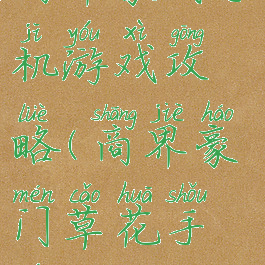 jī yóu xì gōng
机游戏攻
lüè shāng jiè háo
略(商界豪
mén cǎo huā shǒu
门草花手